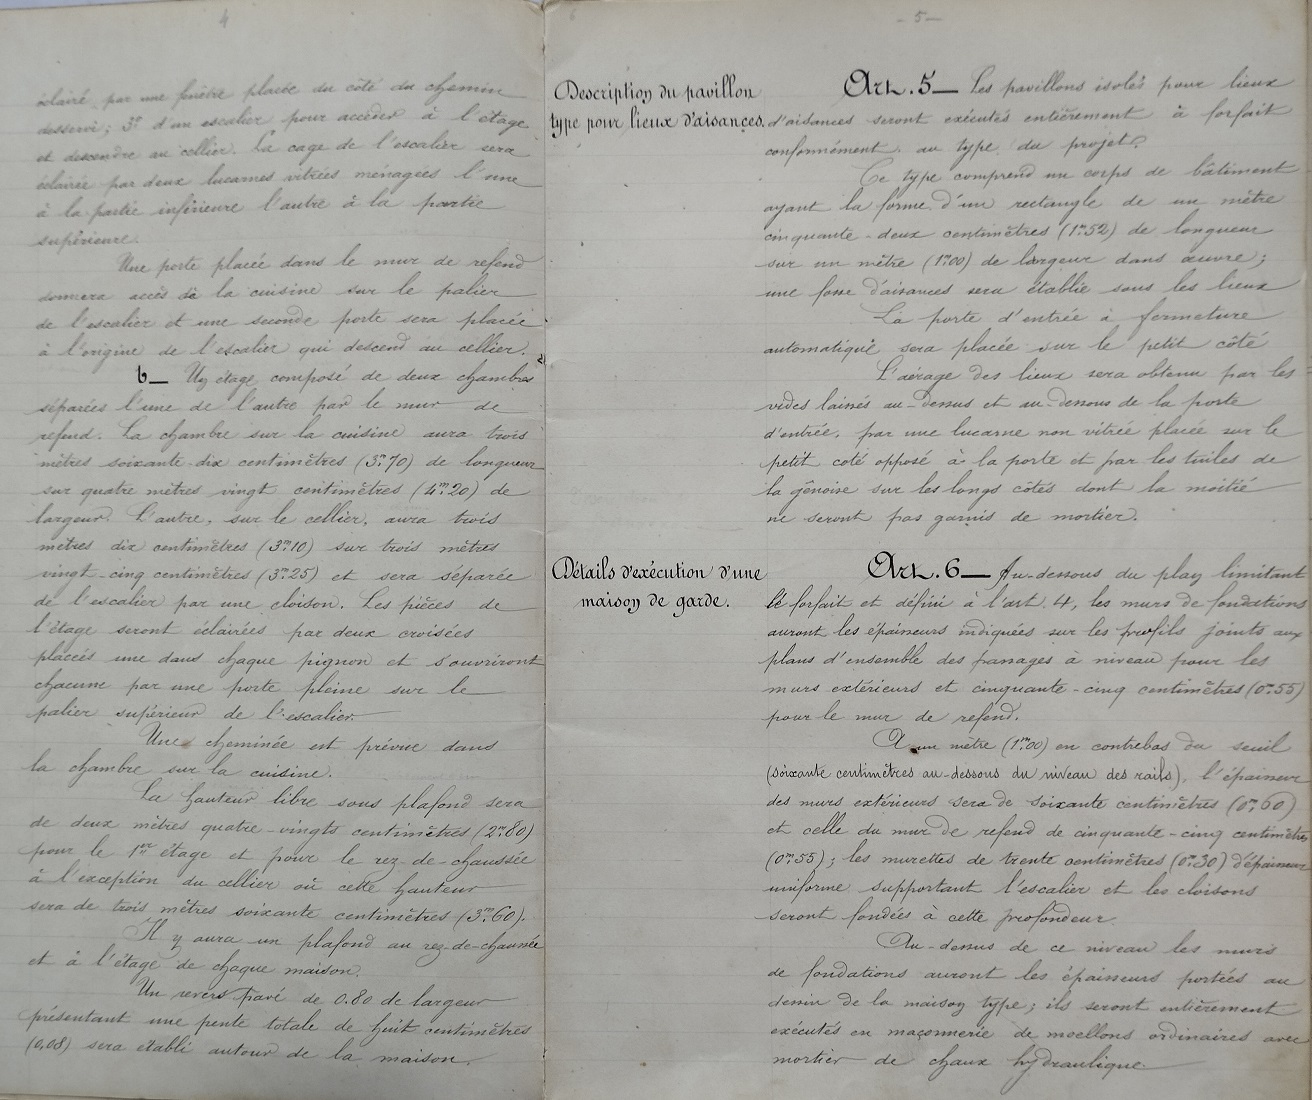 4
éclairé par une fenêtre placée du côté du chemin
desservi; 3° d'un escalier pour accéder à l'étage
et descendre au cellier. La cage de l'escalier sera
éclairée par deux lucarnes vitrées ménagées l'une
à la partie inférieure l'autre à la partie
supérieure.
Une porte placée dans le mur de refend
donnera accès de la cuisine sur le palier
de l'escalier et une seconde porte sera placée
à l'origine de l'escalier qui descend au cellier.
b_ Un étage composé de deux chambres
séparées l'une de l'autre par le mur de
refend. La chambre sur la cuisine aura trois
mètres soixante-dix centimètres (3m.70) de longueur
sur quatre mètres vingt centimètres (4m.20) de
largeur. L'autre, sur le cellier, aura trois
mètres dix centimètres (3m.10) sur trois mètres
vingt-cinq centimètres (3m.25) et sera séparée
de l'escalier par une cloison. Les pièces de
l'étage seront éclairées par deux croisées
placées une dans chaque pignon et s'ouvriront
chacune par une porte pleine sur le
palier supérieur de l'escalier.
Une cheminée est prévue dans
la chambre sur la cuisine.
La hauteur libre sous plafond sera
de deux mètres quatre-vingts centimètres (2m.80)
pour le 1er étage et pour le rez-de-chaussée
à l'exception du cellier où cette hauteur
sera de trois mètres soixante centimètres (3m.60).
Il y aura un plafond au rez-de-chaussée
et à l'étage de chaque maison.
Un revers pavé de 0.80 de largeur
présentant une pente totale de huit centimètres
(0,08) sera établi autour de la maison.
- 5 -
Description du pavillon
type pour lieux d'aisances.
Art. 5_ Les pavillons isolés pour lieux
d'aisances seront exécutés entièrement à forfait
conformément au type du projet.
Ce type comprend un corps de bâtiment
ayant la forme d'un rectangle de un mètre
cinquante-deux centimètres (1m.52) de longueur
sur un mètre (1m.00) de largeur dans œuvre;
une fosse d'aisances sera établie sous les lieux
La porte d'entrée à fermeture
automatique sera placée sur le petit côté
L'aérage des lieux sera obtenu par les
vides laissés au-dessus et au-dessous de la porte
d'entrée, par une lucarne non vitrée placée sur le
petit coté opposé à la porte et par les tuiles de
la gênoise sur les longs côtés dont la moitié
ne seront pas garnis de mortier.
Détails d'exécution d'une
maison de garde.
Art. 6_ Au-dessous du plan limitant
le forfait et défini à l'art. 4, les murs de fondations
auront les épaisseurs indiquées sur les profils joints aux
plans d'ensemble des passages à niveau pour les
murs extérieurs et cinquante-cinq centimètres (0m.55)
pour le mur de refend.
A un mètre (1m.00) en contrebas du seuil
(soixante centimètres au-dessous du niveau des rails), l'épaisseur
des murs extérieurs sera de soixante centimètres (0m.60)
et celle du mur de refend de cinquante-cinq centimètres
(0m.55); les murettes de trente centimètres (0m.30) d'épaisseur
uniforme supportant l'escalier et les cloisons
seront fondées à cette profondeur.
Au-dessus de ce niveau les murs
de fondations auront les épaisseurs portées au
dessin de la maison type; ils seront entièrement
exécutés en maçonnerie de moellons ordinaires avec
mortier de chaux hydraulique.